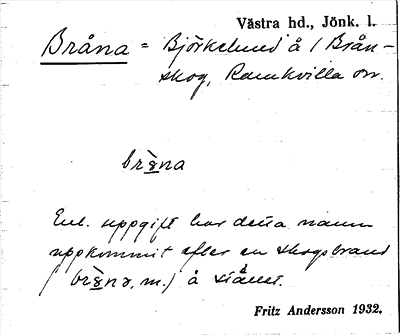 Västra hd., Jönk. l.
Bråna = Björkelund å / Brån-
skog, Ramkvilla sn.
brana
Enl. uppgift har detta namn
uppkommit efter en skogsbrand
/ m./ å stället.
Fritz Andersson 1932.